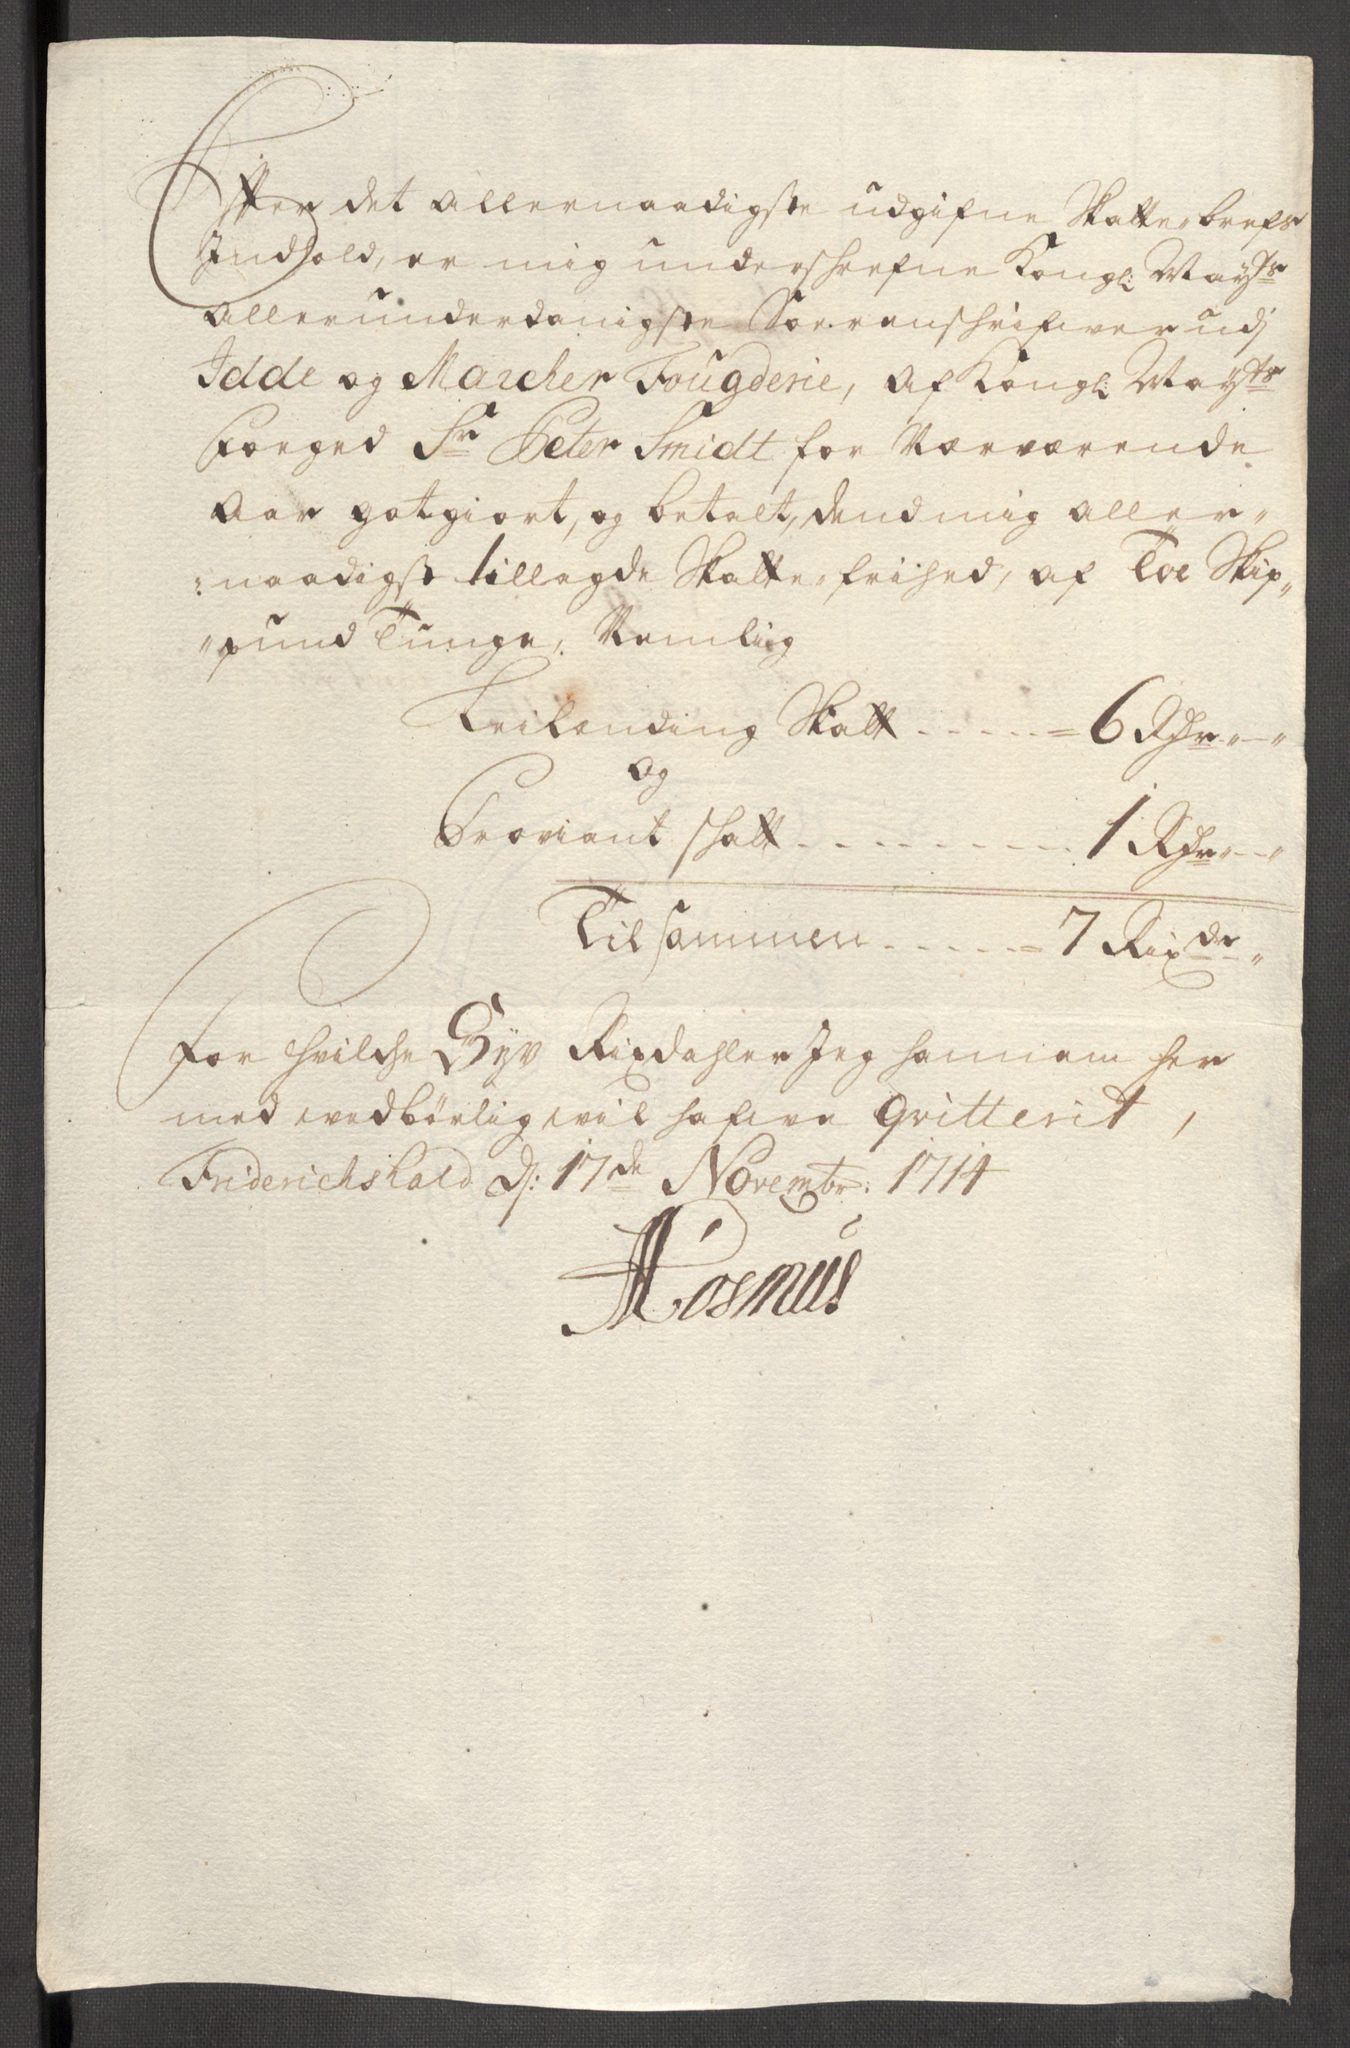 Efter det allernaadigste udgifne Skatte brefs
Indhold, er mig underschrefne Kongl: Mayts
allerunderdanigste Sorenschrifwer udj
Idde og Marcker Fougderie, af Kongl: Mayts
Foeged Sr Peter Smidt for Nærværende
Aar gotgiort, og betalt, dend mig aller„
„naadigst tillagde Skatte frihed, af Toe Skip„
„pund Tunge, Nemlig
Krilonding Skatt - - - - - = 6 Rdr „ - „
og
Proviant skatt - - - - - - - - - - 1 Rdr „ - „
Tilsammen - - - - - = 7 Rixdr - „
For hvilche Syv Rixdahler Jeg hannem her
med wedbörlig wil hafwe qvitterit,
Friderichshald d: 17de Novembr: 1714
Rosmus